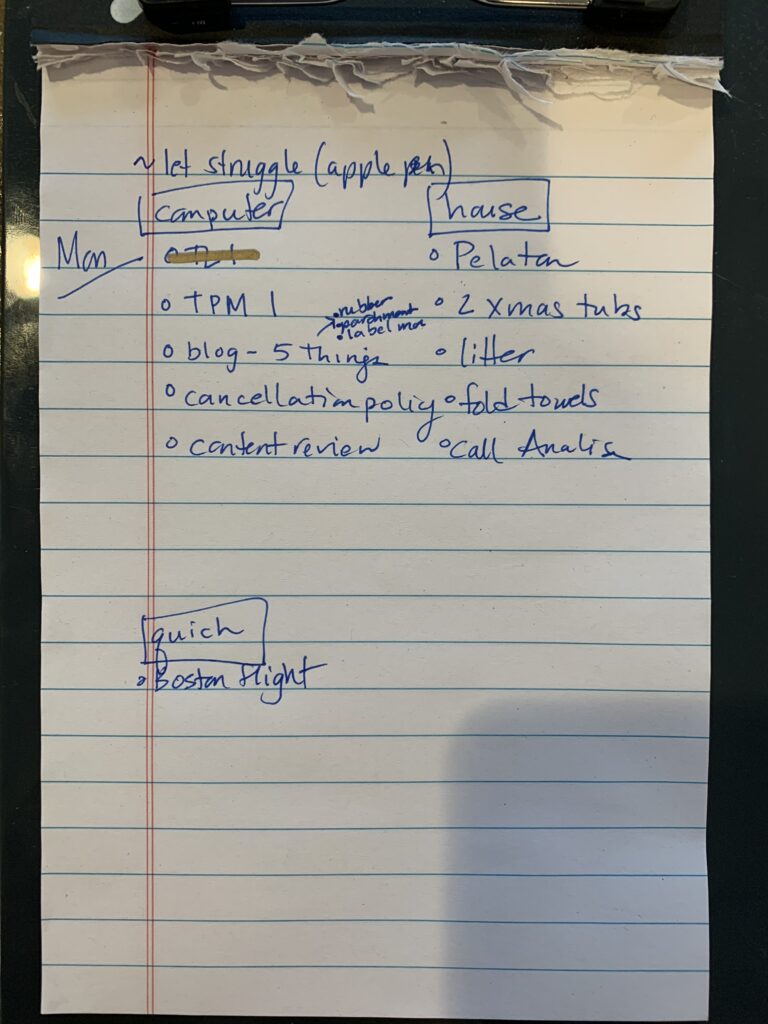 ~ let struggle (apple pen)
computer
house
Mon
• TL 1
• Pelaton
• TPM 1
• rubber
• parchment
• label ma
• 2 xmas tubs
• blog - 5 things
• litter
• cancellation policy
• fold towels
• content review
• call Analisa
quick
• Boston flight